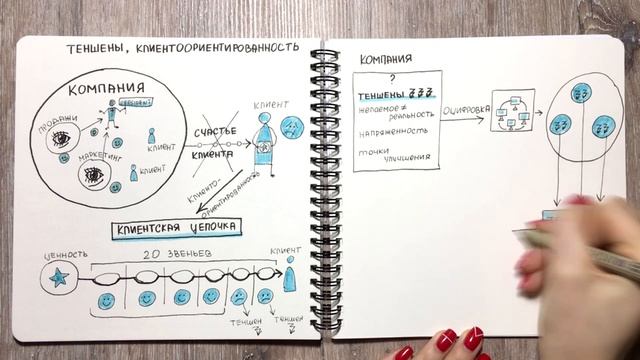 ТЕНШЕНЫ, КЛИЕНТООРИЕНТИРОВАННОСТЬ
КОМПАНИЯ
ПРОДАЖИ
МАРКЕТИНГ
КЛИЕНТ
КЛИЕНТ
СЧАСТЬЕ
КЛИЕНТА
КЛИЕНТ
КЛИЕНТО-
ОРИЕНТИРОВАННОСТЬ
КЛИЕНТСКАЯ ЦЕПОЧКА
ЦЕННОСТЬ
20 ЗВЕНЬЕВ
КЛИЕНТ
ТЕНШЕН
ТЕНШЕН
КОМПАНИЯ
?
ТЕНШЕНЫ
ЖЕЛАЕМОЕ ≠
РЕАЛЬНОСТЬ
НАПРЯЖЕННОСТЬ
ТОЧКИ
УЛУЧШЕНИЯ
ОЦИФРОВКА